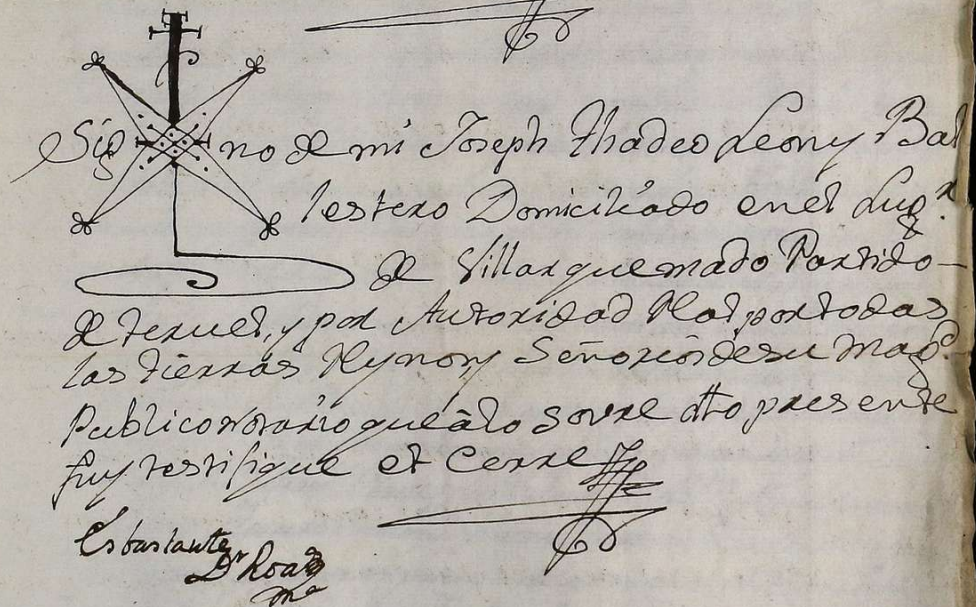 Sig no de mi Joseph Thadeo Leon y Bal
lestero Domiciliado en el Lugr.
de Villarquemado Partido
de teruel, y por Autoridad Rl. por todas
las tierras Rynos, y Señorios de su Magd.
Publico notario que a lo sovre dho presente
fuy testifique et Cerre
Es bastante
Dr Roa